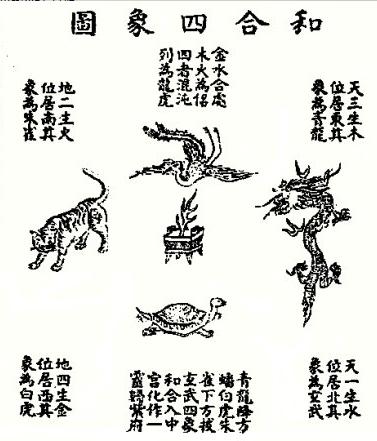 和合四象圖
天三生木
位居東其
象為青龍
金水合處
木火為侶
四者混沌
列為龍虎
地二生火
位居南其
象為朱雀
天一生水
位居北其
象為玄武
青龍降方
蟠白虎朱
雀下方披
玄武四象
和合入中
宮化作一
靈歸紫府
地四生金
位居西其
象為白虎